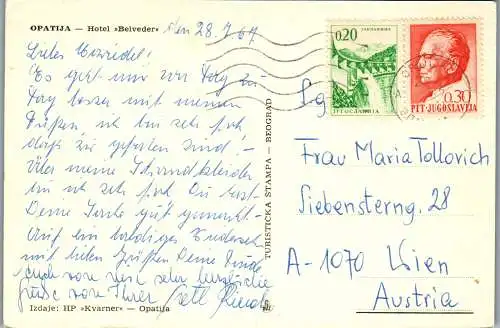 OPATIJA — Hotel »Belveder«
den 28.9.67
Liebes
Es geht mir von Tag zu
Tag besser mit meinen
Füßen, ich bin sehr froh
daß sie gefallen sind!
Über meine Strandkleider
bin ich sehr froh Du hast
Deine Sache gut gemacht
Auf ein baldiges Wiedersehen
mit lieben Grüßen Deine
auch von mir sehr herzliche
Grüße von Ihrer
Izdaje: HP »Kvarner« — Opatija
TURISTIČKA ŠTAMPA — BEOGRAD
0,20
JUGOSLAVIJA
0,30
PTT-JUGOSLAVIJA
Frau Maria Tollovich
Siebensterng. 28
A-1070 Wien
Austria